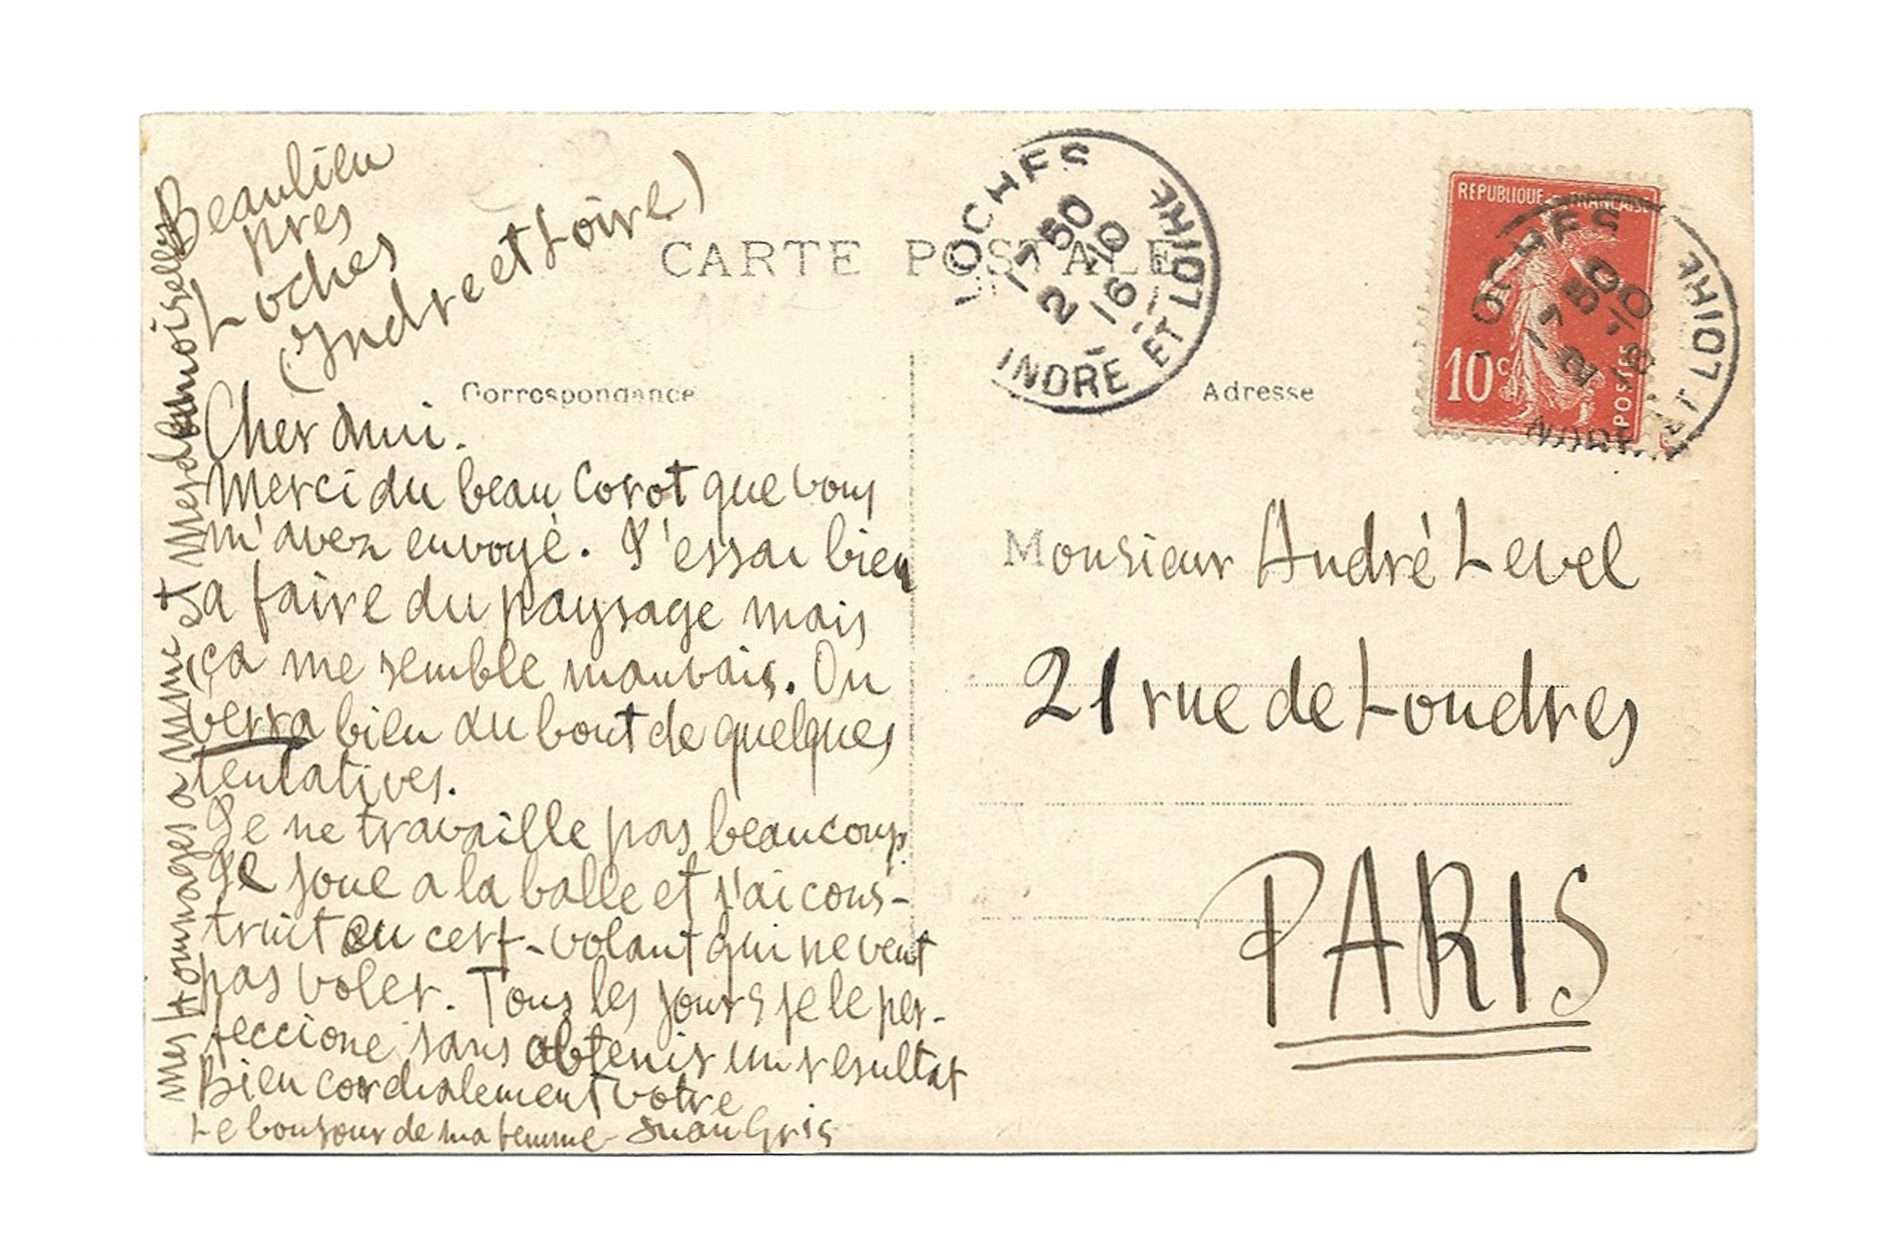 Beaulieu
près
Loches
(Indre et Loire)
CARTE POSTALE
Correspondance
Cher Ami.
Merci du beau Corot que vous
m'avez envoyé. J'essai bien
a faire du paysage mais
ça me semble mauvais. On
verra bien au bout de quelques
tentatives.
Je ne travaille pas beaucoup
Je joue a la balle et j'ai cons-
truit un cerf-volant qui ne veut
pas voler. Tous les jours je le per-
feccione sans obtenir un resultat
Bien cordialement votre
Juan Gris
Le bonjour de ma femme
mes Hommages a Mme et Mesdemoiselles
LOCHES
17 50
2 -10
16
INDRE ET LOIRE
Adresse
REPUBLIQUE FRANÇAISE
10 c
POSTES
LOCHES
17 50
2 -10
16
INDRE ET LOIRE
Monsieur André Level
21 rue de Londres
PARIS